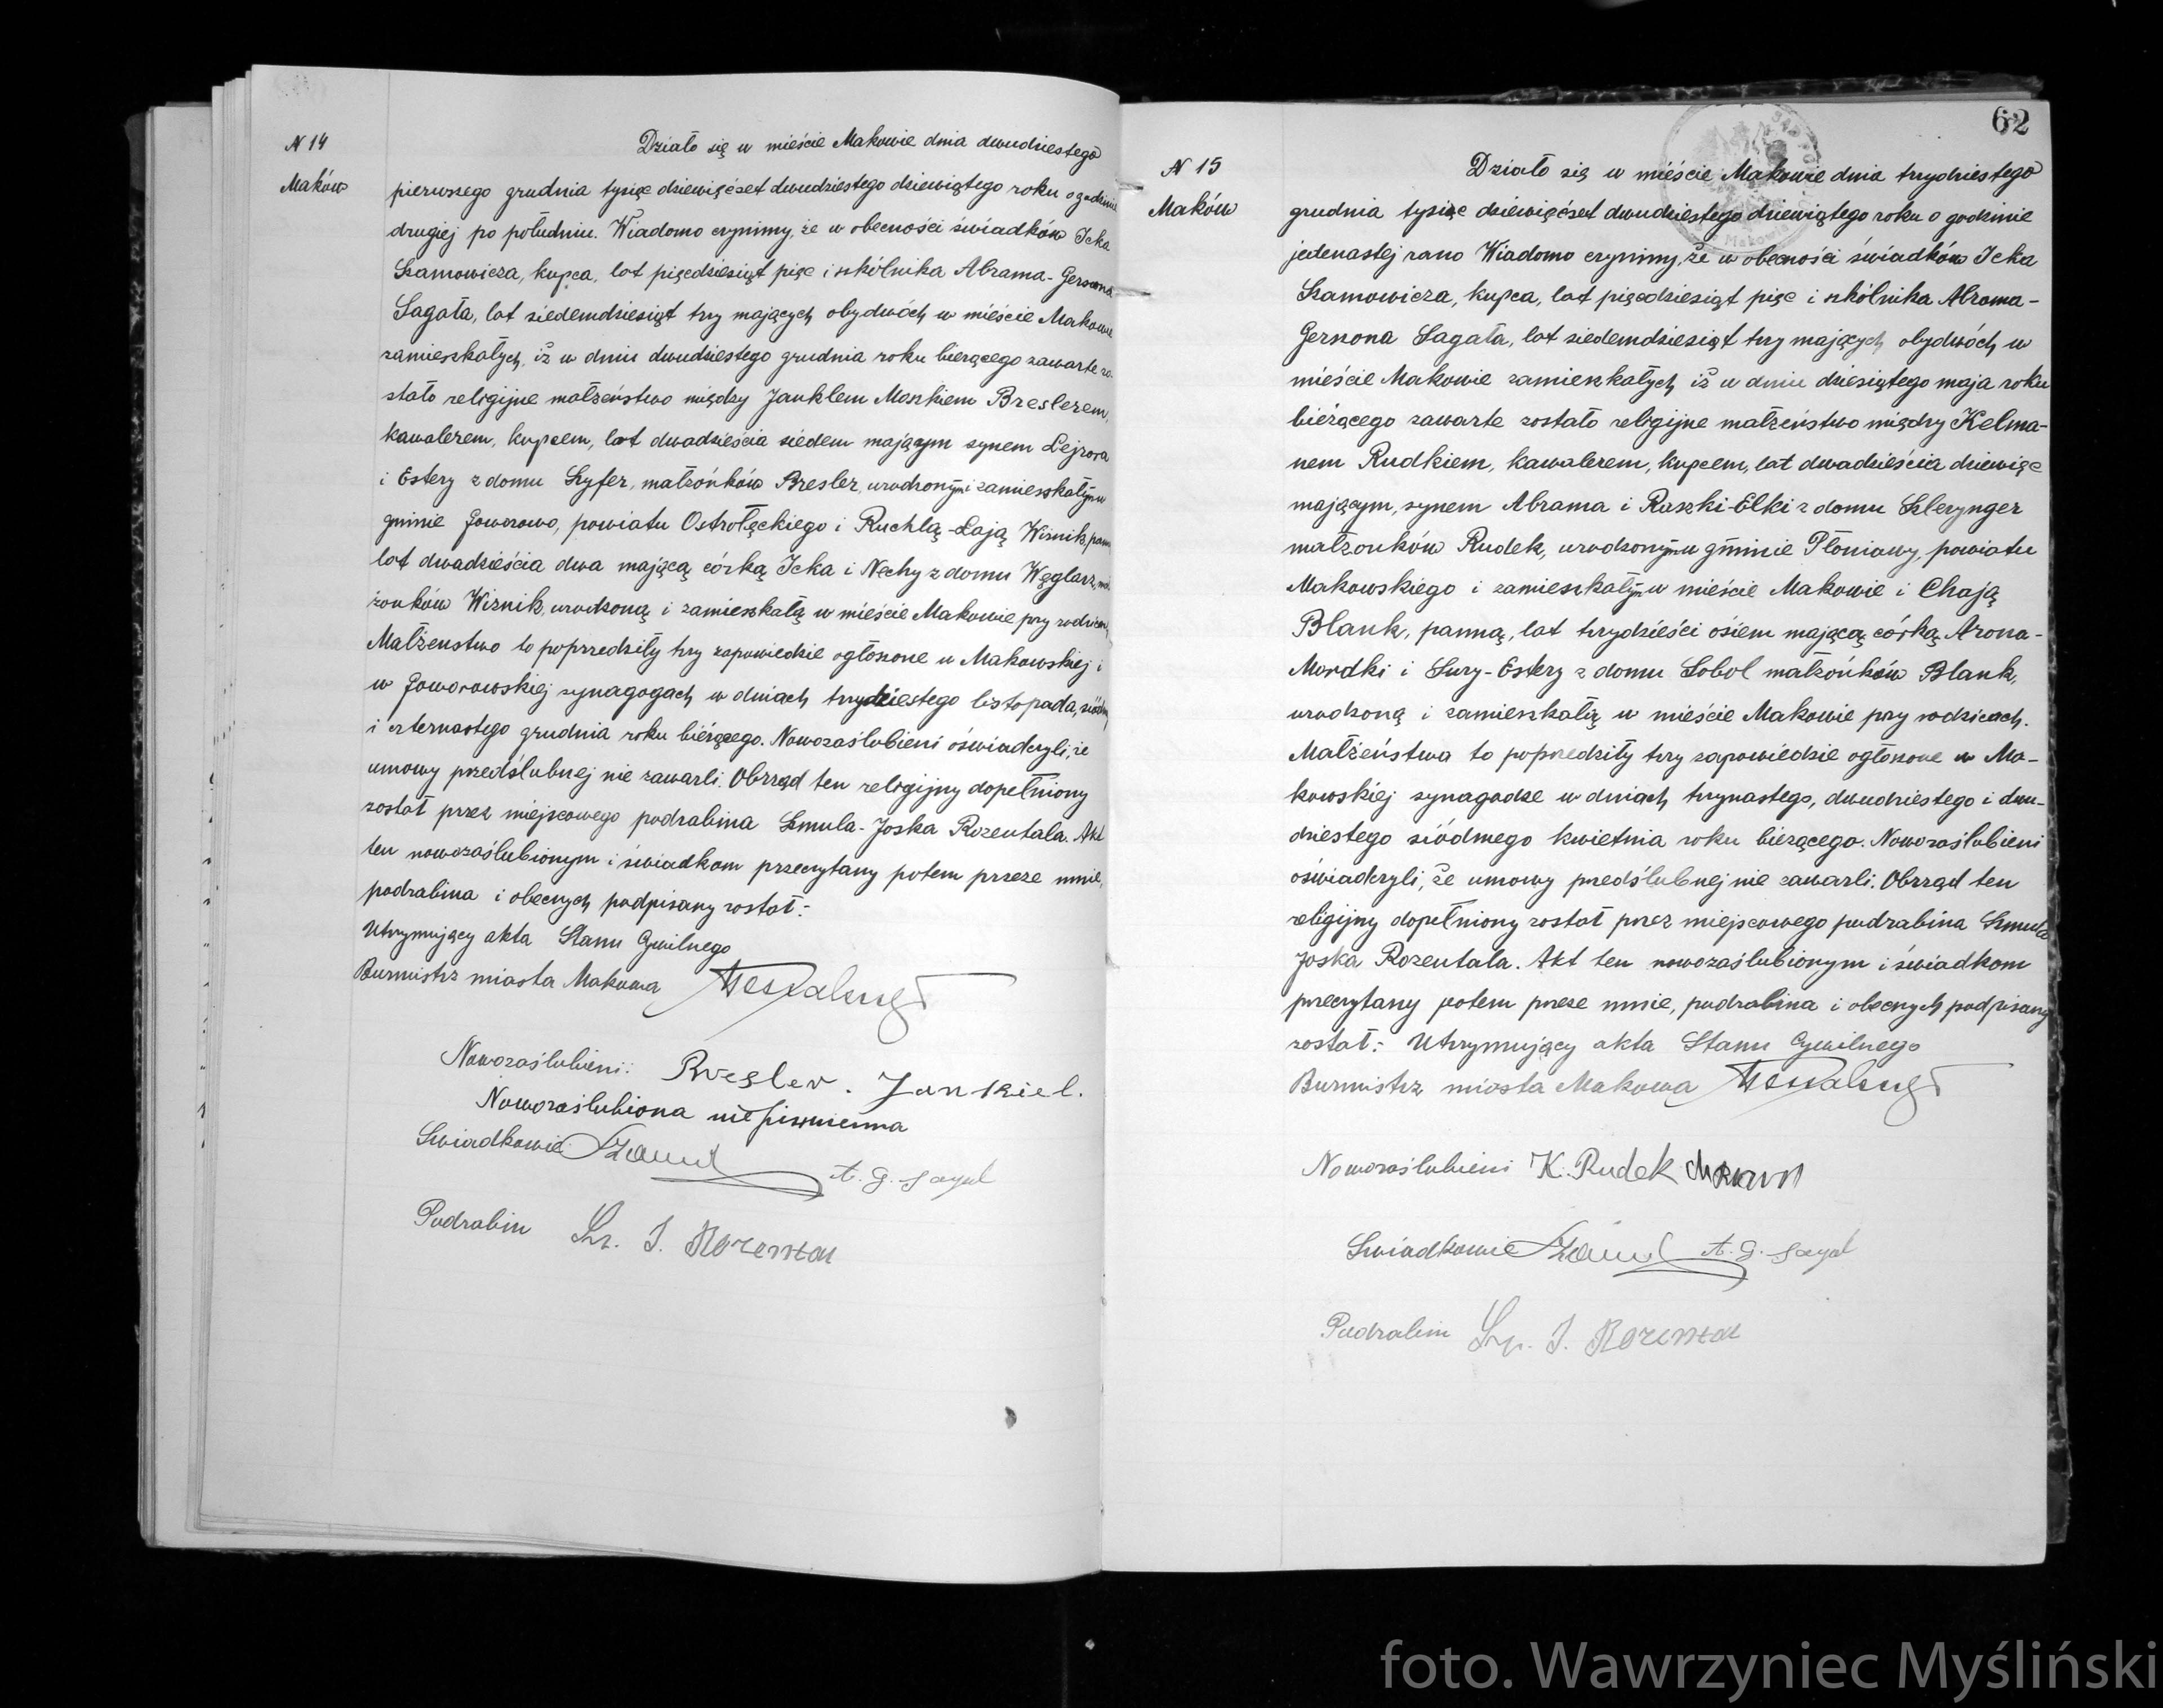 N 14
Maków
Działo się w mieście Makowie dnia dwudziestego
pierwszego grudnia tysiąc dziewięćset dwudziestego dziewiątego roku o godzinie
drugiej po południu. Wiadomo czynimy, że w obecności świadków Icka
Szamowicza, kupca, lat pięćdziesiąt pięć i szkólnika Abrama-Gerszona
Sagała, lat siedemdziesiąt trzy mających obydwóch w mieście Makowie
zamieszkałych, iż w dniu dwudziestego grudnia roku bieżącego zawarte zo-
stało religijne małżeństwo między Janklem Moszkiem Breslerem,
kawalerem, kupcem, lat dwadzieścia siedem mającym synem Lejzora
i Estery z domu Szyfer, małżonków Bresler, urodzonym i zamieszkałym w
gminie Goworowo, powiatu Ostrołęckiego i Ruchlą-Łają Wiśnik, panną
lat dwadzieścia dwa mającą córką Icka i Nechy z domu Węglarz, mał-
żonków Wiśnik, urodzoną i zamieszkałą w mieście Makowie przy rodzicach
Małżeństwo to poprzedziły trzy zapowiedzie ogłoszone w Makowskiej i
w Goworowskiej synagogach w dniach trzydziestego listopada, siódmego
i czternastego grudnia roku bieżącego. Nowozaślubieni oświadczyli, że
umowy przedślubnej nie zawarli. Obrząd ten religijny dopełniony
został przez miejscowego podrabina Szmula-Joska Rozentala. Akt
ten nowozaślubionym i świadkom przeczytany potem przeze mnie,
podrabina i obecnych podpisany został:-
Utrzymujący akta Stanu Cywilnego
Burmistrz miasta Makowa
Nowozaślubieni: Bresler. Jankiel.
Nowozaślubiona niepiśmienna
Świadkowie A. G. Sagał
Podrabin Sz. J. Rozental
62
N 15
Maków
Działo się w mieście Makowie dnia trzydziestego
grudnia tysiąc dziewięćset dwudziestego dziewiątego roku o godzinie
jedenastej rano Wiadomo czynimy, że w obecności świadków Icka
Szamowicza, kupca, lat pięćdziesiąt pięć i szkólnika Abrama-
Gerszona Sagała, lat siedemdziesiąt trzy mających obydwóch w
mieście Makowie zamieszkałych, iż w dniu dziesiątego maja roku
bieżącego zawarte zostało religijne małżeństwo między Kelma-
nem Rudkiem, kawalerem, kupcem, lat dwadzieścia dziewięć
mającym, synem Abrama i Raszki-Elki z domu Szlezynger
małżonków Rudek, urodzonym w gminie Płoniawy, powiatu
Makowskiego i zamieszkałym w mieście Makowie i Chają
Blank, panną, lat trzydzieści osiem mającą córką Arona-
Mordki i Sury-Estery z domu Sobol małżonków Blank,
urodzoną i zamieszkałą w mieście Makowie przy rodzicach.
Małżeństwa to poprzedziły trzy zapowiedzie ogłoszone w Ma-
kowskiej synagodze w dniach trzynastego, dwudziestego i dwu-
dziestego siódmego kwietnia roku bieżącego. Nowozaślubieni
oświadczyli, że umowy przedślubnej nie zawarli. Obrząd ten
religijny dopełniony został przez miejscowego podrabina Szmula
Joska Rozentala. Akt ten nowozaślubionym i świadkom
przeczytany potem przeze mnie, podrabina i obecnych podpisany
został:- Utrzymujący akta Stanu Cywilnego
Burmistrz miasta Makowa
Nowozaślubieni K. Rudek
Świadkowie A. G. Sagał
Podrabin Sz. J. Rozental
foto. Wawrzyniec Myśliński